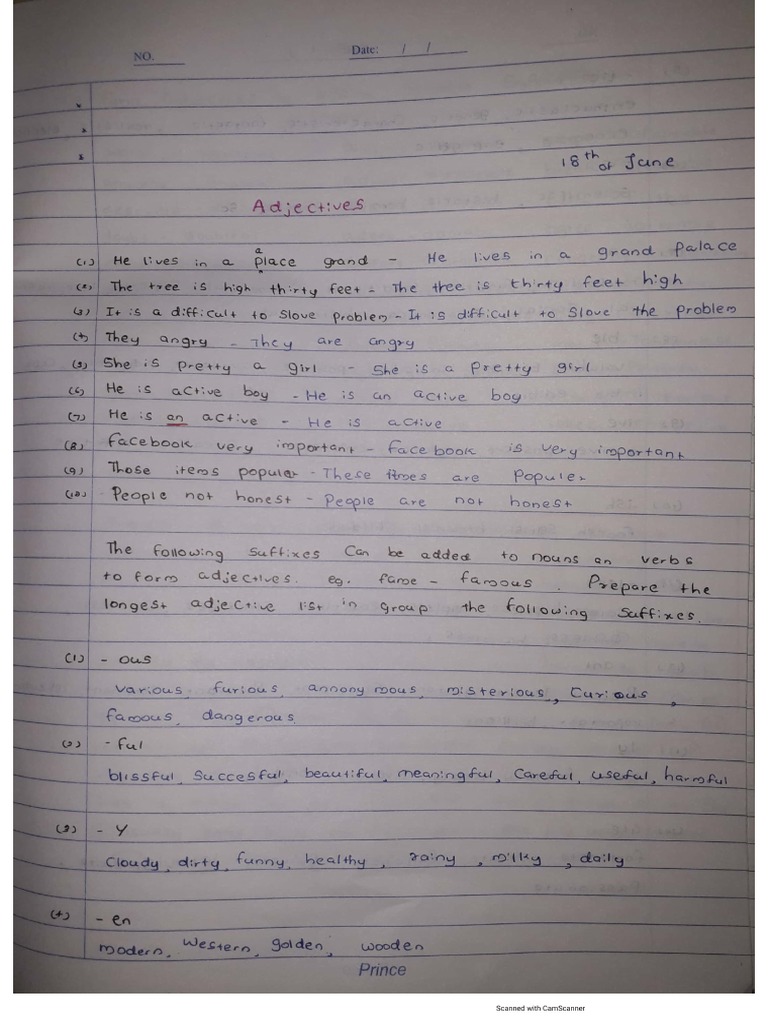 NO.
Date: / /
18th of June
Adjectives
(1) He lives in a palace grand - He lives in a grand palace
(2) The tree is high thirty feet - The tree is thirty feet high
(3) It is a difficult to Slove problem - It is difficult to Slove the problem
(4) They angry - They are angry
(5) She is pretty a girl - She is a pretty girl
(6) He is active boy - He is an active boy
(7) He is an active - He is active
(8) facebook very important - facebook is very important
(9) Those items popular - These are Populer
(10) People not honest - People are not honest
The following suffixes Can be added to nouns an verbs
to form adjectives. eg. fame - famous. Prepare the
longest adjective list in group the following suffixes.
(1) - ous
various, furious, annonymous, misterious, Curious,
famous, dangerous.
(2) - ful
blissful, Succesful, beautiful, meaningful, Careful, useful, harmful
(3) - Y
Cloudy, dirty, funny, healthy, rainy, milky, daily
(4) - en
modern, Western, golden, wooden
Prince
Scanned with CamScanner